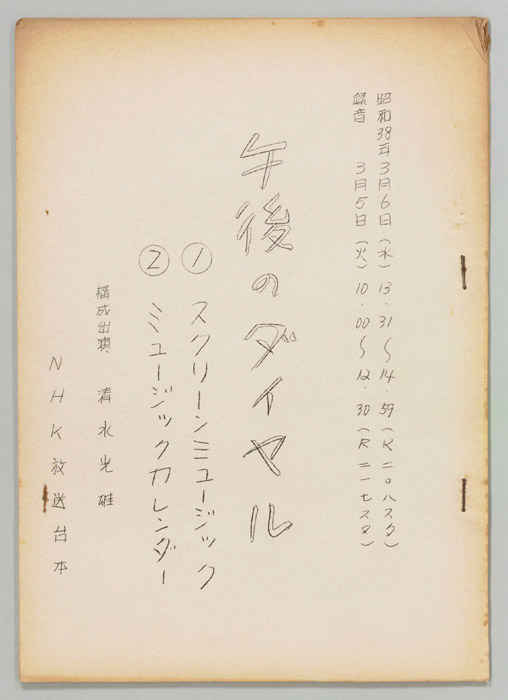 昭和38年3月6日(水) 13.31〜14.59(R二〇八スタ)
録音 3月5日(火) 10.00〜12.30(R二一七スタ)
午後のダイヤル
① スクリーンミュージック
② ミュージックカレンダー
構成出演 清水光雄
NHK放送台本